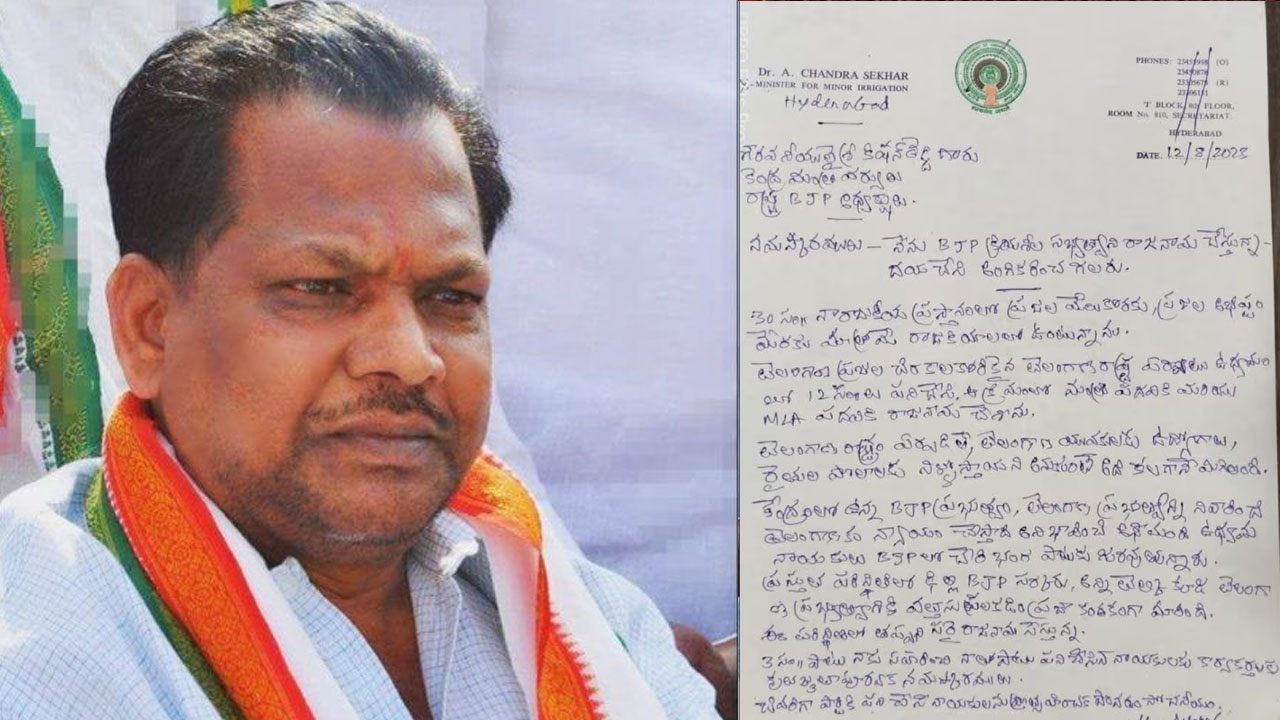 Dr. A. CHANDRA SEKHAR
MINISTER FOR MINOR IRRIGATION
Hyderabad
PHONES: 23451998 (O)
(R)
'J' BLOCK, 8th FLOOR,
ROOM No. 810, SECRETARIAT.
HYDERABAD
DATE. 12/8/2023
గౌరవనీయులైన శ్రీ కిషన్ రెడ్డి గారు
కేంద్ర మంత్రి వర్యులు
రాష్ట్ర BJP అధ్యక్షులు.
నమస్కారములు – నేను BJP క్రియాశీల సభ్యత్వానికి రాజీనామా చేస్తున్నా –
దయచేసి అంగీకరించ గలరు.
30 సం॥ నా రాజకీయ ప్రస్థానంలో ప్రజల మేలు కొరకు, ప్రజల అభీష్టం
మేరకు మాత్రమే రాజకీయాలలో ఉంటున్నాను.
తెలంగాణ ప్రజల చిరకాల కాంక్షైన తెలంగాణ రాష్ట్ర ఏర్పాటు ఉద్యమం
లో 12 సం॥లు పనిచేసి, ఆ క్రమంలో మంత్రి పదవికి మరియు
MLA పదవికి రాజీనామా చేశాను.
తెలంగాణ రాష్ట్రం ఏర్పడితే, తెలంగాణ యువకులకు ఉద్యోగాలు,
రైతుల పొలాలకు నీళ్ళొస్తాయని అనుకుంటే అది కలగానే మిగిలింది.
కేంద్రంలో ఉన్న BJP ప్రభుత్వం, తెలంగాణ ప్రభుత్వాన్ని నివారించి
తెలంగాణకు న్యాయం చేస్తాది అని భావించి ఉద్యమ
నాయకులు BJP లో చేరి భంగ పాటుకు గురవుతున్నారు.
ప్రస్తుత పరిస్థితిలో ఢిల్లీ BJP సర్కారు, అన్ని తెల్సి కూడా తెలంగా
ణ ప్రభుత్వానికి వత్తాసు పలకడం ప్రజా కంటకంగా మారింది.
ఈ పరిస్థితిలో తప్పని సరై రాజీనామా చేస్తున్న.
3 సం॥ పాటు నాకు సహకరించి నాతో పాటు పని చేసిన నాయకులకు కార్యకర్తలకు
కృతజ్ఞతాపూర్వక నమస్కారములు.
చివరిగా పార్టీకి పని చేసే నాయకులను ప్రోత్సహించక పోవడం శోచనీయం.